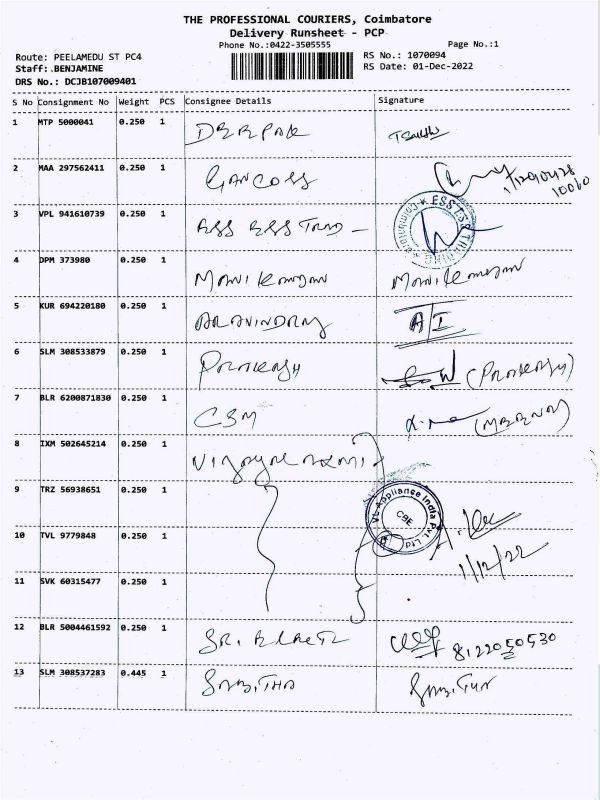 THE PROFESSIONAL COURIERS, Coimbatore
Delivery Runsheet - PCP
Phone No.:0422-3505555
Page No.:1
Route: PEELAMEDU ST PC4
RS No.: 1070094
Staff: BENJAMINE
RS Date: 01-Dec-2022
DRS No.: DCJB107009401
S No Consignment No Weight PCS Consignee Details Signature
1 MTP 5000041 0.250 1 DEEPAK
2 MAA 297562411 0.250 1
3 VPL 941610739 0.250 1 ESS ESS TRAD - ESS ESS
4 DPM 373980 0.250 1 Manikandan Manikandan
5 KUR 694220180 0.250 1 ARAVINDRAJ A/I
6 SLM 308533879 0.250 1 PRAKASH (PRAKASH)
7 BLR 6200871830 0.250 1 CSM (MEENA)
8 IXM 502645214 0.250 1 Vijayalaxmi
9 TRZ 56938651 0.250 1 VL Appliance India Pvt. Ltd CBE
10 TVL 9779848 0.250 1 1/12/22
11 SVK 60315477 0.250 1
12 BLR 5004461592 0.250 1 8122050530
13 SLM 308537283 0.445 1